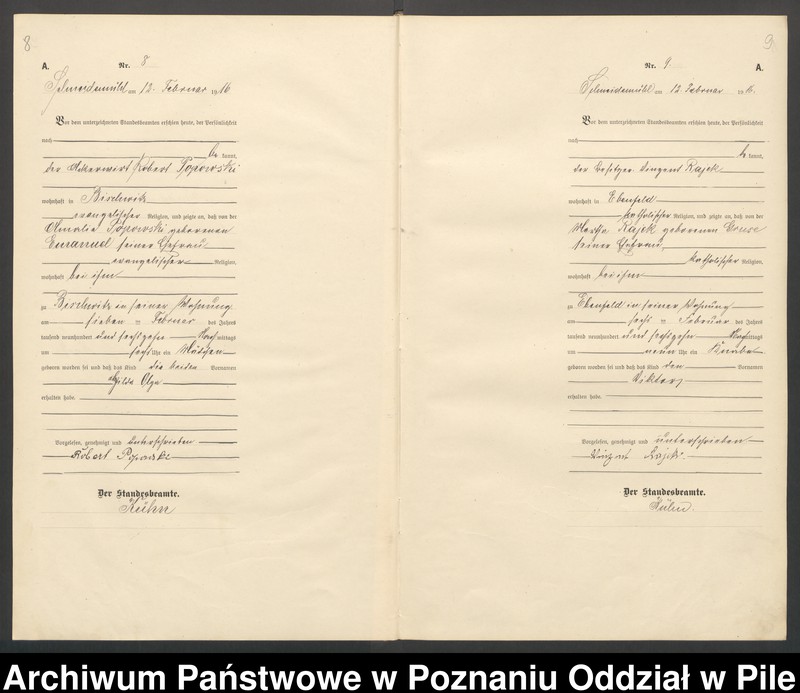 8
A.
Nr. 8
Schneidemühl am 12. Februar 1916
Vor dem unterzeichneten Standesbeamten erschien heute, der Persönlichkeit
nach
be kannt,
der Ackerwirt Robert Popowski
wohnhaft in
evangelischer Religion, und zeigte an, daß von der
Amalie Popowski geborenen
Emanuel seiner Ehefrau
evangelischer Religion,
wohnhaft bei ihm
zu in seiner Wohnung
am sieben ten Februar des Jahres
tausend neunhundert und sechzehn Nach mittags
um sechs Uhr ein Mädchen
geboren worden sei und daß das Kind die beiden Vornamen
Olga
erhalten habe.
Vorgelesen, genehmigt und unterschrieben
Robert Popowski
Der Standesbeamte.
Kühn
9
Nr. 9
A.
Schneidemühl am 12 Februar 1916.
Vor dem unterzeichneten Standesbeamten erschien heute, der Persönlichkeit
nach
be kannt,
der Besitzer Vinzent Rajek
wohnhaft in Ebenfeld
katholischer Religion, und zeigte an, daß von der
Rajek geborenen
seiner Ehefrau
katholischer Religion,
wohnhaft bei ihm
zu Ebenfeld in seiner Wohnung
am sechs ten Februar des Jahres
tausend neunhundert und sechzehn mittags
um neun Uhr ein Knabe
geboren worden sei und daß das Kind den Vornamen
Viktor
erhalten habe.
Vorgelesen, genehmigt und unterschrieben
Vinzent Rajek
Der Standesbeamte.
Kühn.
Archiwum Państwowe w Poznaniu Oddział w Pile